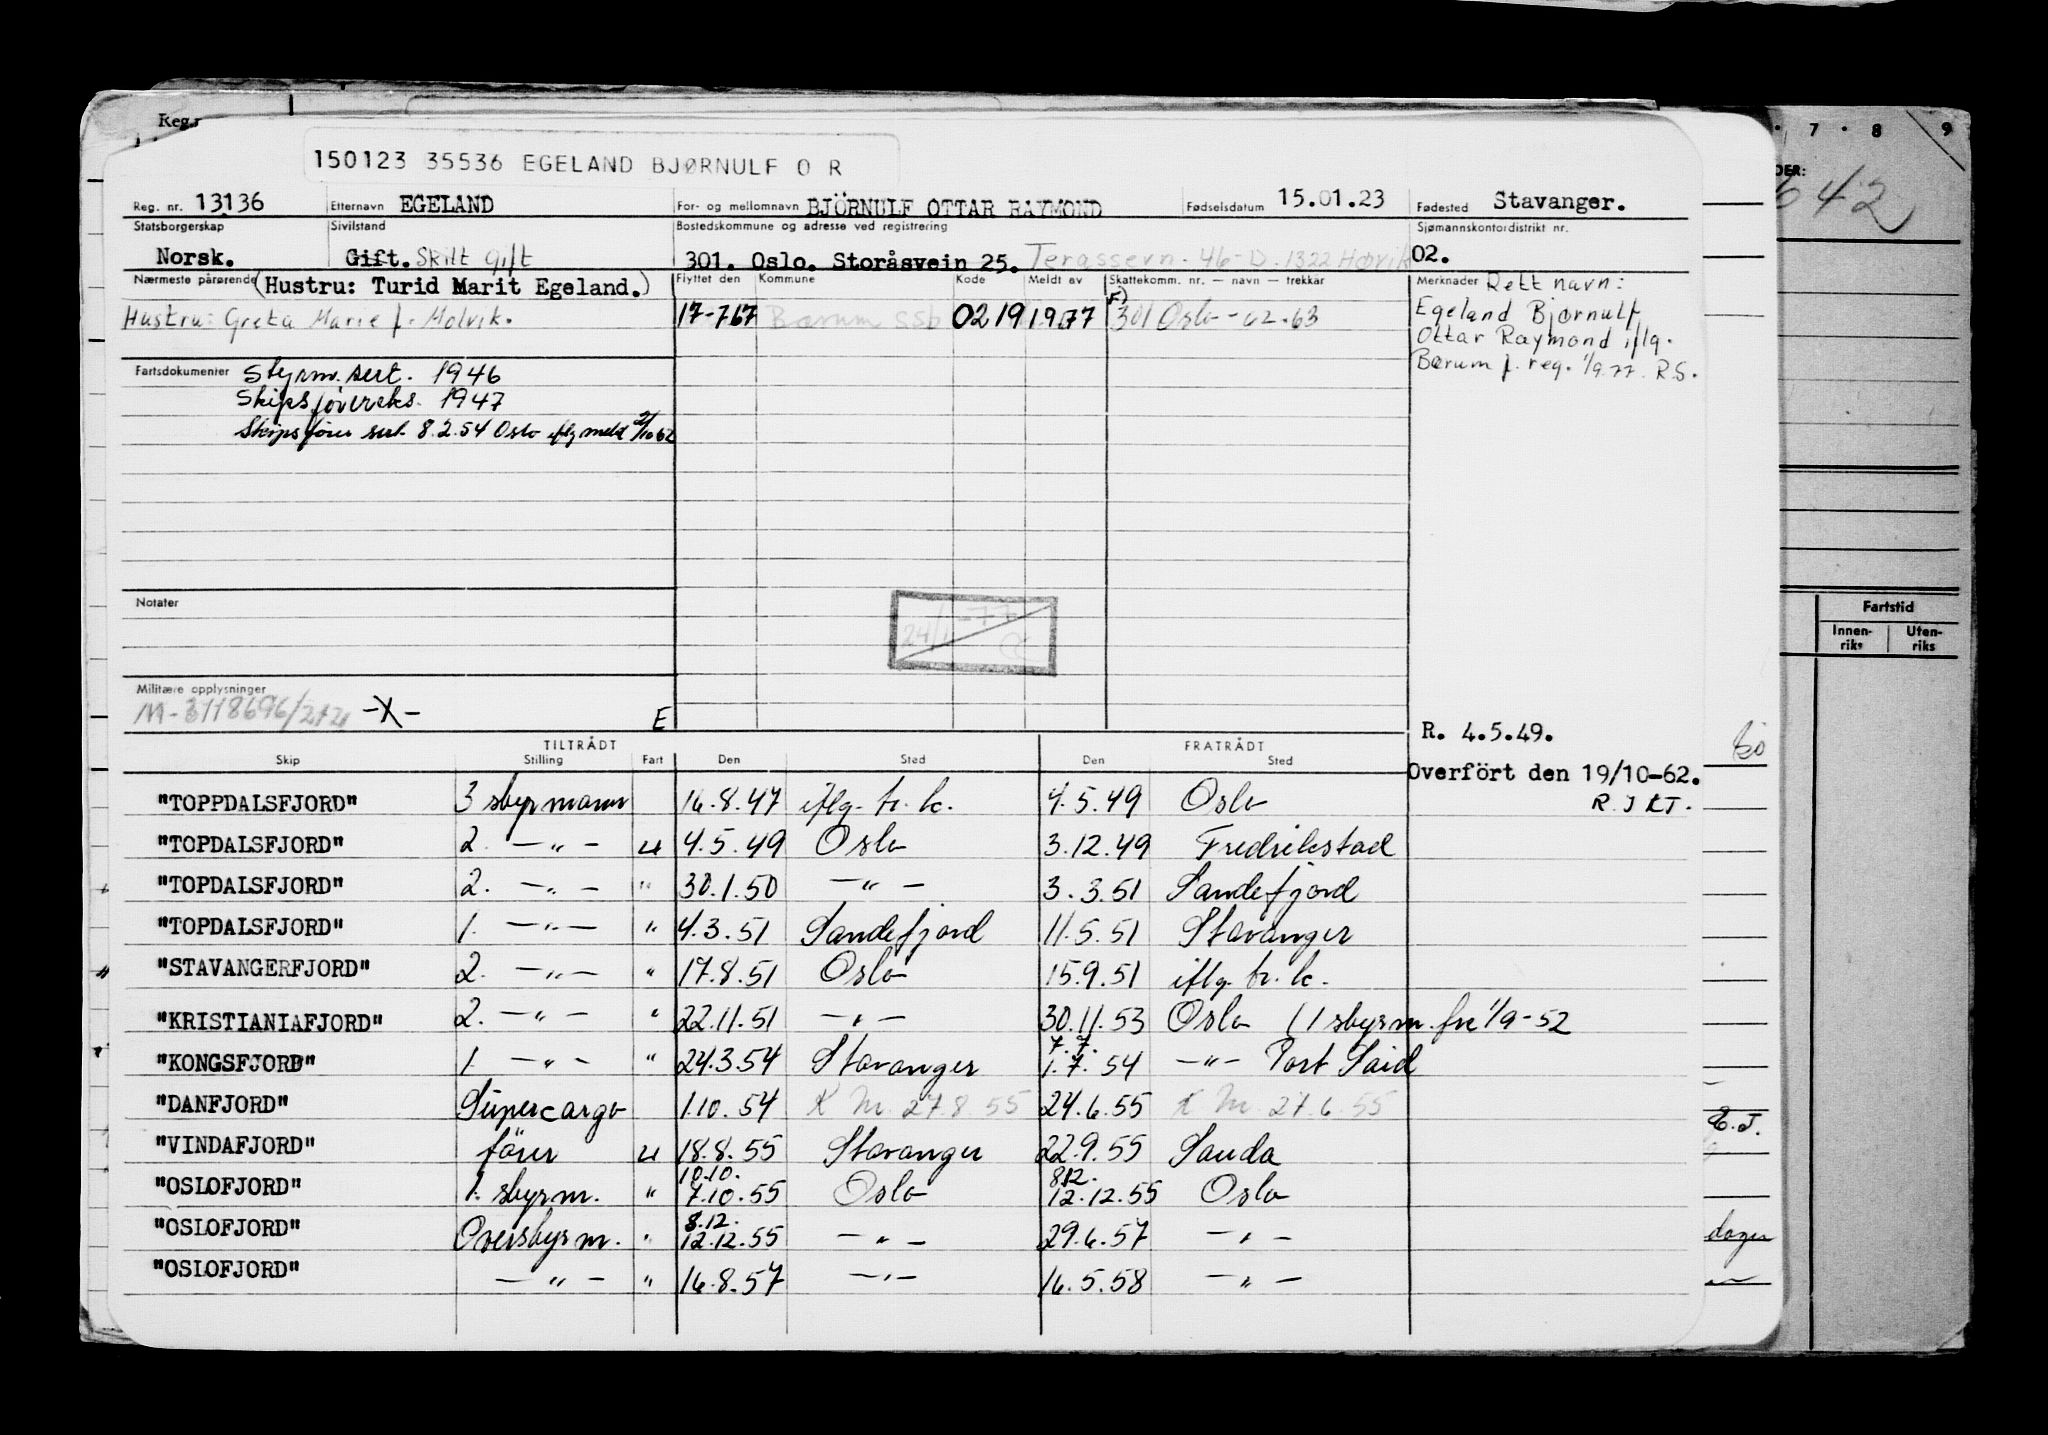 Reg.
· 7 · 8 9
150123 35536 EGELAND BJØRNULF O R
DER:
642
Reg. nr. 13136 Etternavn EGELAND For- og mellomnavn BJÖRNULF OTTAR RAYMOND Fødselsdatum 15.01.23 Fødested Stavanger.
Statsborgerskap Sivilstand Bostedskommune og adresse ved registrering Sjømannskontordistrikt nr.
Norsk. Gift. Skilt Gift 301. Oslo. Storåsvein 25. Terassevn. 46-D. 1322 Høvik 02.
Nærmeste pårørende (Hustru: Turid Marit Egeland.) Flyttet den Kommune Kode Meldt av Skattekomm. nr. — navn — trekkår Merknader Rett navn:
Hustru: Greta Marie f. Molvik. 17-767 Bærum ssb 0219 1.9.77 301 Oslo - 62.63 Egeland Bjørnulf
Ottar Raymond iflg.
Bærum f. reg. 1/9.77. R.S.
Fartsdokumenter Styrm. sert. 1946
Skipsførereks. 1947
Skipsfører sert. 8.2.54 Oslo iflg meld 2/10 62
Notater
24/1-77
Fartstid
Innenriks Utenriks
Militære opplysninger
M-3118696/ -X- E
R. 4.5.49.
TILTRÅDT FRATRÅDT
Skip Stilling Fart Den Sted Den Sted
Overfört den 19/10-62.
R. J LT.
"TOPPDALSFJORD" 3 styrmann 16.8.47 iflg. tr. k. 4.5.49 Oslo
"TOPDALSFJORD" 2. — " — U 4.5.49 Oslo 3.12.49 Fredrikstad
"TOPDALSFJORD" 2. — " — " 30.1.50 — " — 3.3.51 Sandefjord
"TOPDALSFJORD" 1. — " — " 4.3.51 Sandefjord 11.5.51 Stavanger
"STAVANGERFJORD" 2. — " — " 17.8.51 Oslo 15.9.51 iflg. tr. k.
"KRISTIANIAFJORD" 2. — " — " 22.11.51 — " — 30.11.53 Oslo (1 styrm. fra 1/9-52
"KONGSFJORD" 1 — " — " 24.3.54 Stavanger 7.7. 1.7.54 — " — Port Said
"DANFJORD" Supercargo 1.10.54 K M. 27.8 55 24.6.55 K M. 27.6.55
E.J.
"VINDAFJORD" fører U 18.8.55 Stavanger 22.9.55 Sauda
"OSLOFJORD" 1. styrm. " 10.10. 7.10.55 Oslo 8.12. 12.12.55 Oslo
"OSLOFJORD" Overstyrm. " 8.12. 12.12.55 — " — 29.6.57 — " —
dager
"OSLOFJORD" — " — " 16.8.57 — " — 16.5.58 — " —